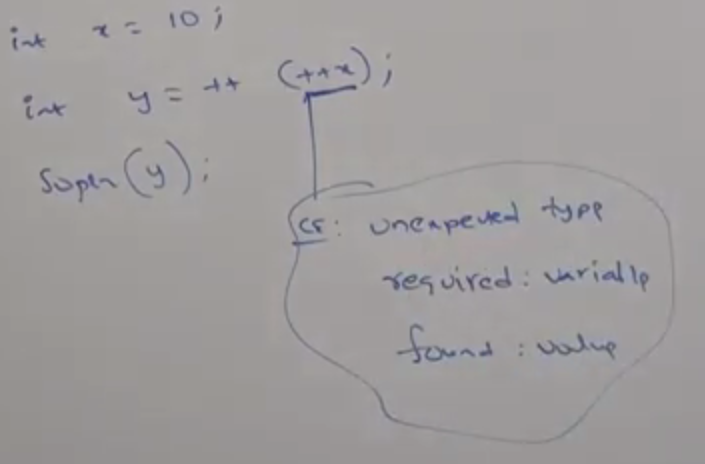 int x = 10;
int y = ++ (++x);
Sopln(y);
CE: unexpected type
required: variable
found: value